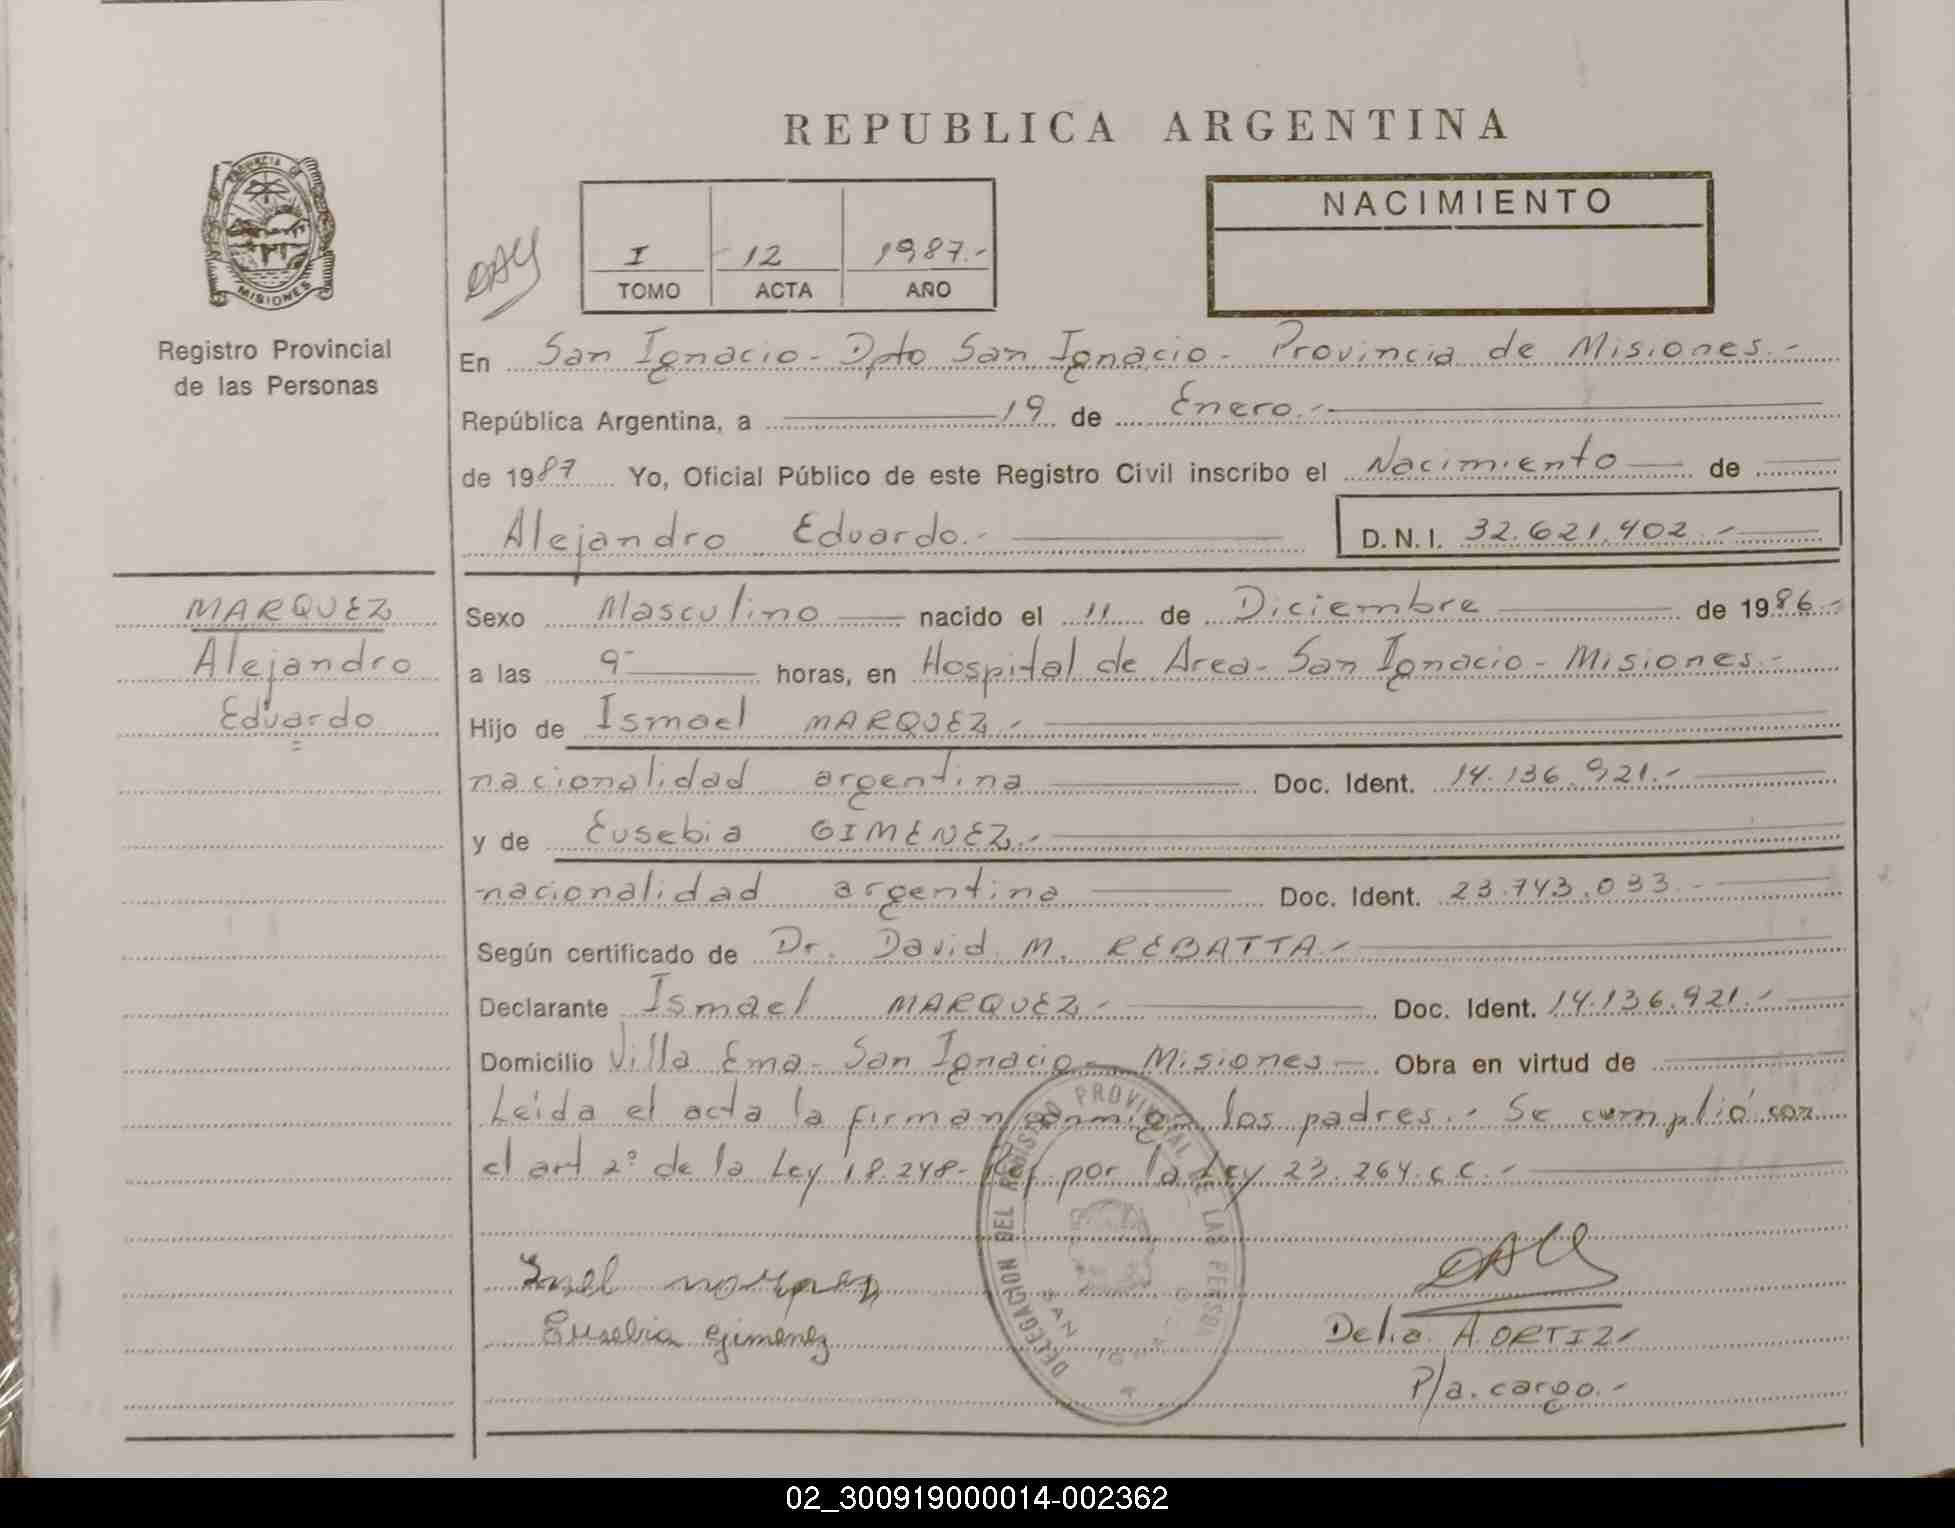 REPUBLICA ARGENTINA
PROVINCIA DE
MISIONES
Registro Provincial
de las Personas
I - 12 1987.-
TOMO ACTA AÑO
NACIMIENTO
En San Ignacio - Dpto San Ignacio - Provincia de Misiones.-
República Argentina, a 19 de Enero.-
de 1987 Yo, Oficial Público de este Registro Civil inscribo el Nacimiento de
Alejandro Eduardo.- D.N.I. 32.621.402.-
MARQUEZ
Alejandro
Eduardo
Sexo Masculino nacido el 11 de Diciembre de 1986.-
a las 9- horas, en Hospital de Area - San Ignacio - Misiones.-
Hijo de Ismael MARQUEZ.-
nacionalidad argentina Doc. Ident. 14.136.921.-
y de Eusebia GIMENEZ.-
nacionalidad argentina Doc. Ident. 23.743.033.-
Según certificado de Dr. David M. REBATTA.-
Declarante Ismael MARQUEZ.- Doc. Ident. 14.136.921.-
Domicilio Villa Ema - San Ignacio - Misiones - Obra en virtud de
Leida el acta la firman conmigo los padres.- Se cumplió con
el art 2º de la Ley 18.248- Ref. por la Ley 23.264.C.C.-
DELEGACION DEL REGISTRO PROVINCIAL DE LAS PERSONAS
Eusebia Gimenez
Delia A. ORTIZ
P/a. cargo.-
02_300919000014-002362